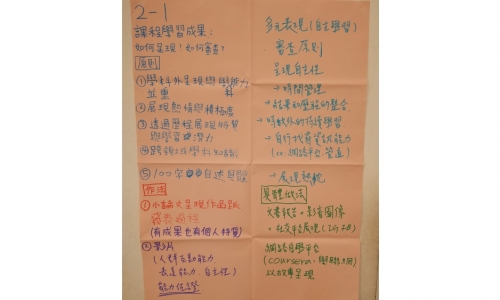 2-1
課程學習成果：
如何呈現！如何審查？
原則
①學科外呈現學學能力
並重 科
②展現熱情與積極度
③透過歷程展現特質
與學習潛力
④跨領域學科知識
⑤100字自述具體
作法
①小論文呈現作品集
發表過程
(有成果也有個人特質)
②影片
(人群互動能力
表達能力.自主性)
能力佐證
多元表現(自主學習)
審查原則
呈現自主性
→時間管理
→結果和歷程的整合
→時軸外的持續學習
→自行找資訊能力
(ex.網路平台.管道)
→展現熱忱
具體做法
文書報告、影音圖像
網路自學平台
(coursera、學聯網)
以故事呈現